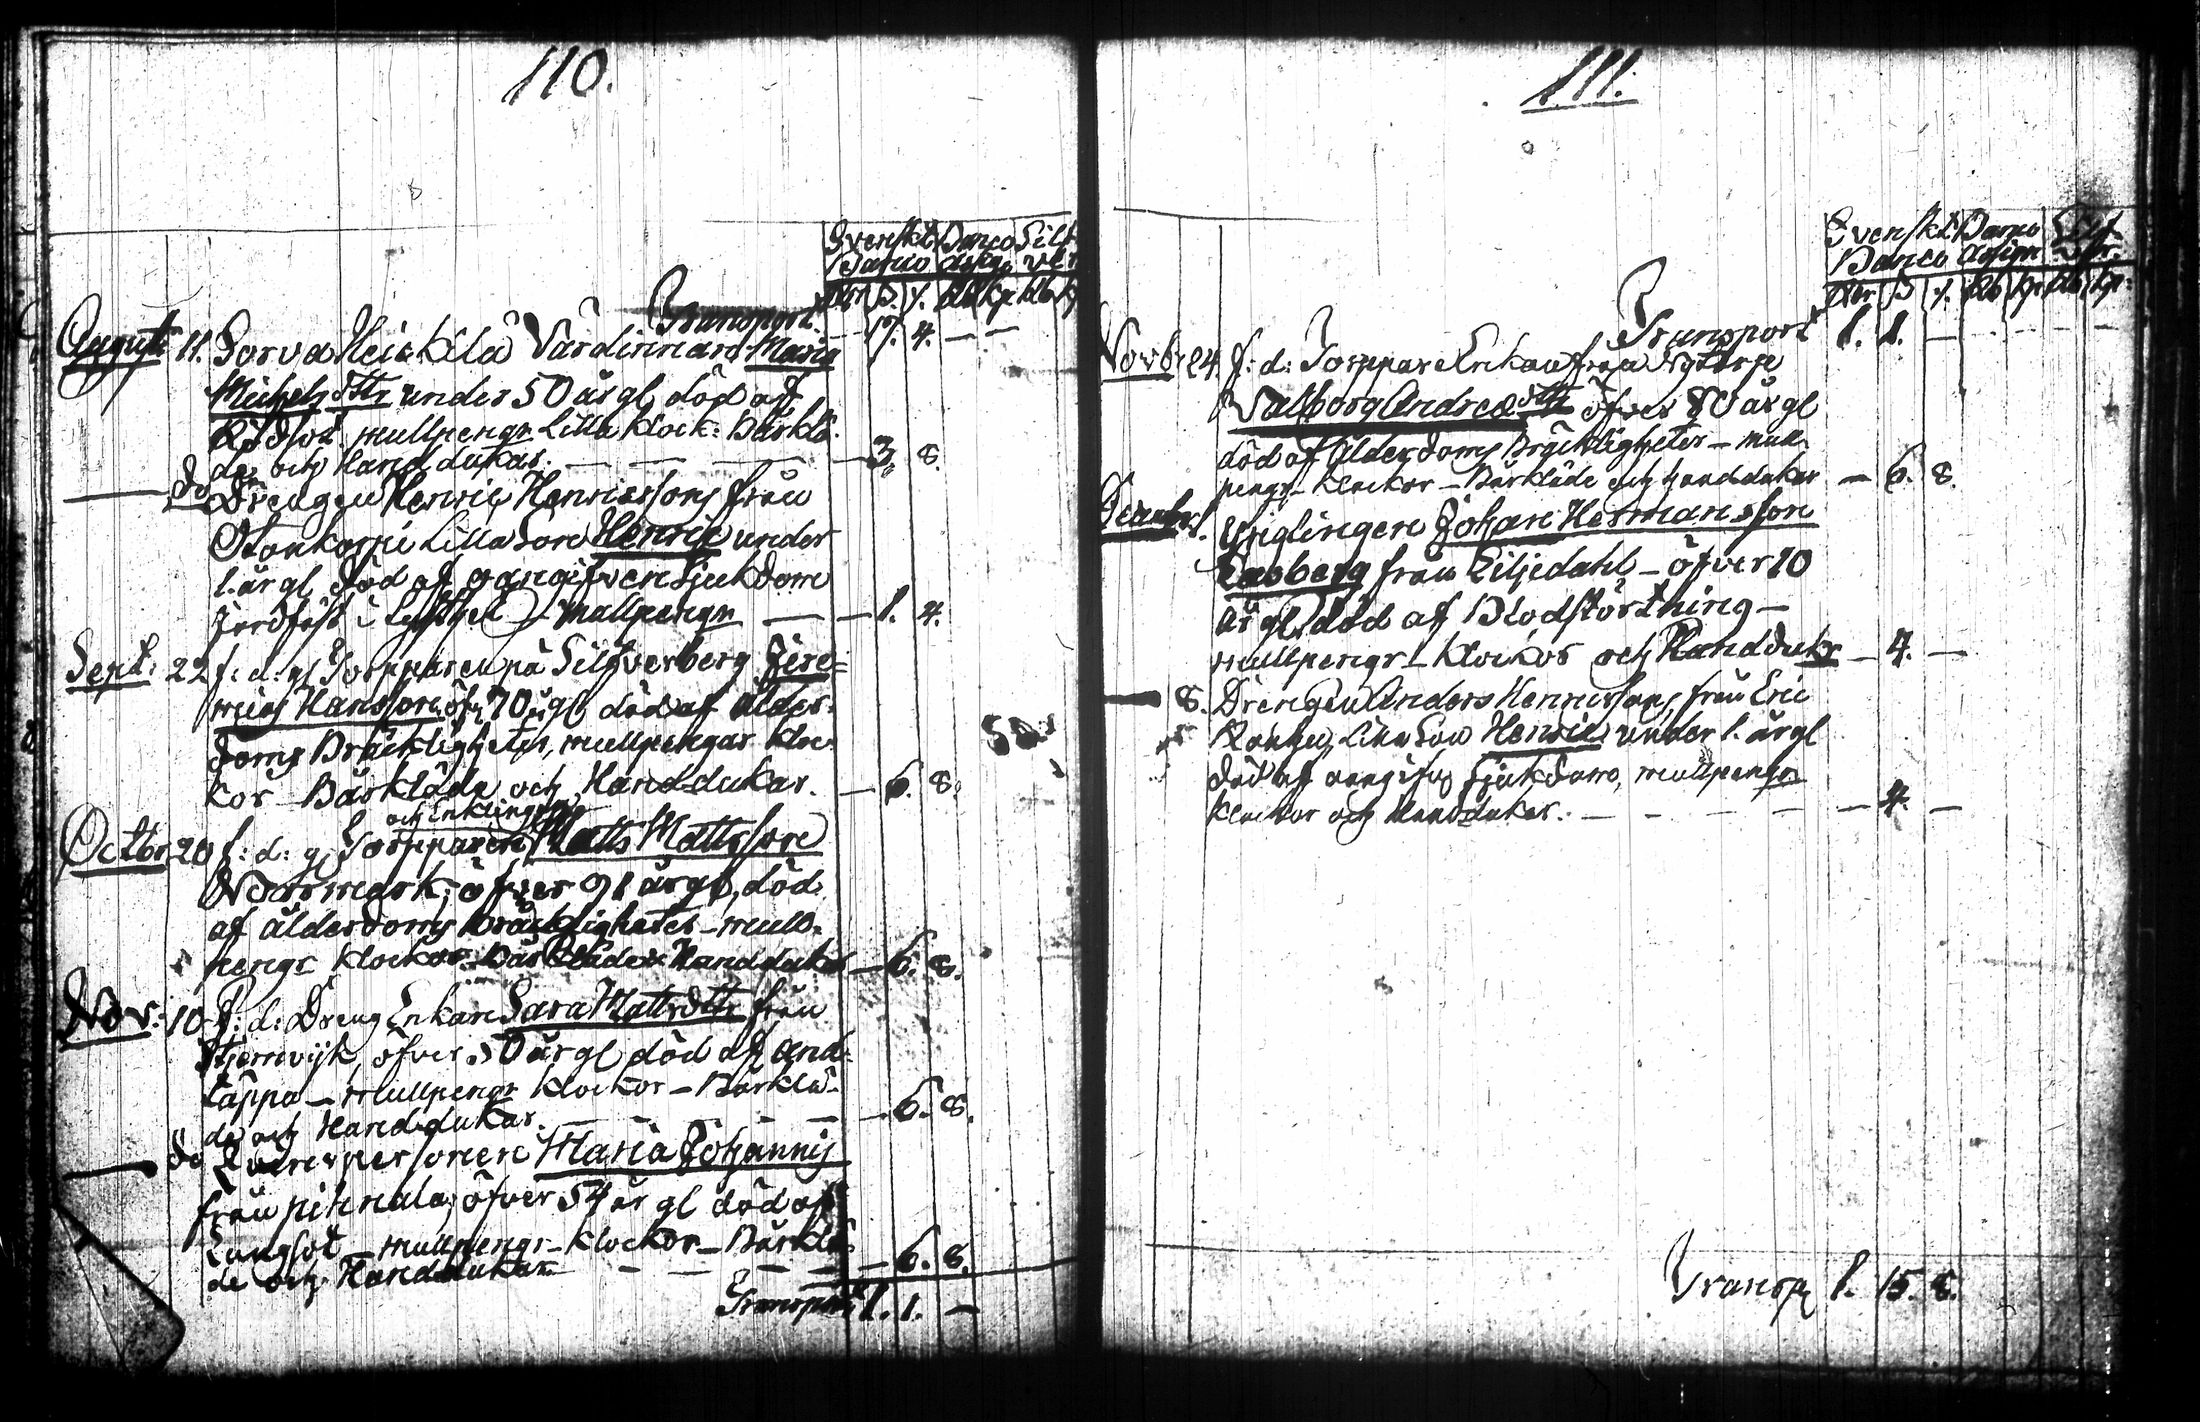 110.
Svenskt Banco Silf-
Banco assign. ver
Rdr ß. r. Rb. Kp. Rb. Kp
Transport. - 17. 4. - -
Augusti 11. Värdinnan Maria
Michels dttr under 50 år gl död af
Rödsot. mullpengr Lilla Klock: Bårklä-
de och Handdukar. - - - 3. 8.
do Drengen Henric Henricssons från
Lilla Son Henric under
1. år gl. död af oangifven Sjukdom
Jordfäst i mullpengr - - 1. 4.
Sept: 22 f: d: gl Torpparen på Silfverberg Jere-
mias Hansson öfr 70 år gl död af ålder-
doms Bräckligheter, mullpengar Kloc-
kor - Bårkläde och Handdukar. - 6. 8.
och Enklingen
Octbr 20 f: d: gl Torpparen Matts Mattsson
Norrmark; öfver 91 år gl, död
af ålderdoms bräckligheter - mull-
pengr Klockor - Bårkläde Handdukar - 6. 8.
Nov: 10 f: d: Dreng Enkan Sara Matts dttr från
öfver 50 år gl död af And-
täppa - Mullpengr Klockor - Bårklä-
de och Handdukar. - - - 6. 8.
do Qvinspersonen Maria Johannis
från öfver 54 år gl död af
Lungsot - mullpengr - Klockor - Bårklä-
de och Handdukar - - - 6. 8.
Transport 1. 1. -
111.
Svenskt Banco Silf-
Banco assign. ver.
Rdr ß r. Rb Kp. Rb Kp.
Transport 1. 1. -
Novbr 24. f: d: Torppare Enkan från Nytorp
Valborg Andreæ dttr öfver 80 år gl
död af Ålderdoms Bräckligheter - mull-
pengr - Klockor - Bårkläde och handdukar - 6. 8.
Decembr 1. Ynglingen Johan Hermansson
från Liljedahl - öfver 10
år gl, död af Blodstörtning -
mullpengr - Klockor och Handdukr - 4. -
- 8. Drengen Anders Henricssons, från Eric
Lilla Son Henric under 1. år gl
död af oangifv Sjukdom, mullpengr
Klockor och Handdukar. - - - 4. -
Transp 1. 15. 8.